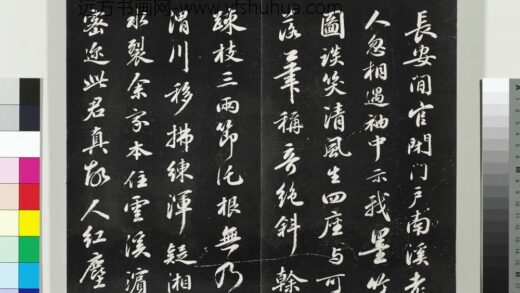 远方书画网 yfshuhua.com
長安閒官閉门戶南溪老
人忽相遇袖中示我墨竹
圖談笑清風生四座与可
落筆稱奇絕斜幹
疎枝三兩節託根無乃
渭川移拂練渾疑湘
水裂余家本住雲溪濱
密迩此君真故人紅塵